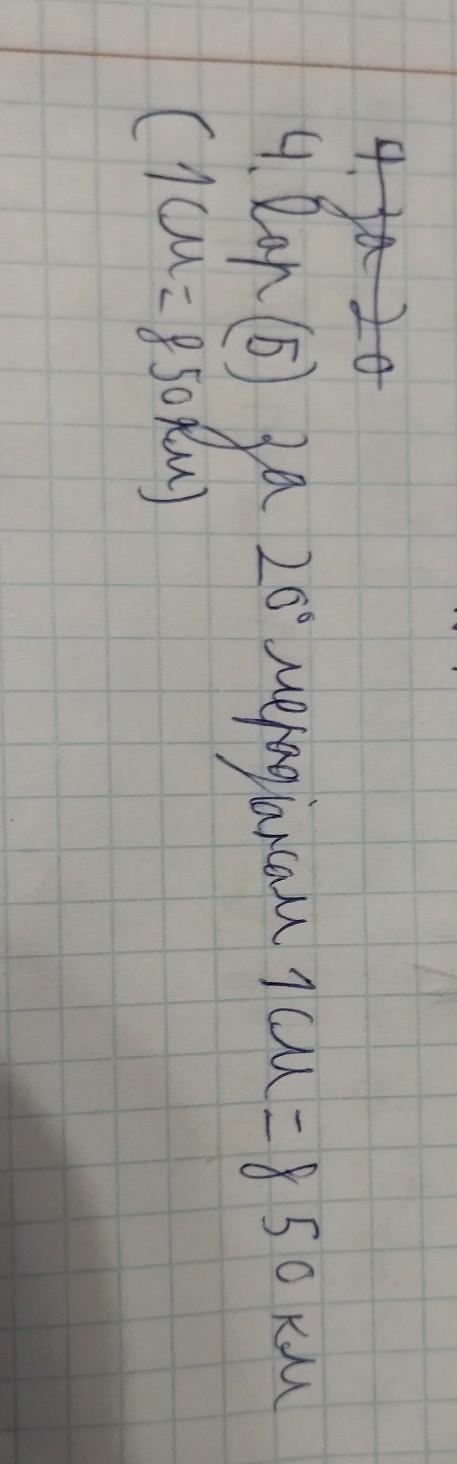 4. за 20
4. вар (Б) за 20° мерадіанам 1 см = 850 км
(1 см = 850 км)